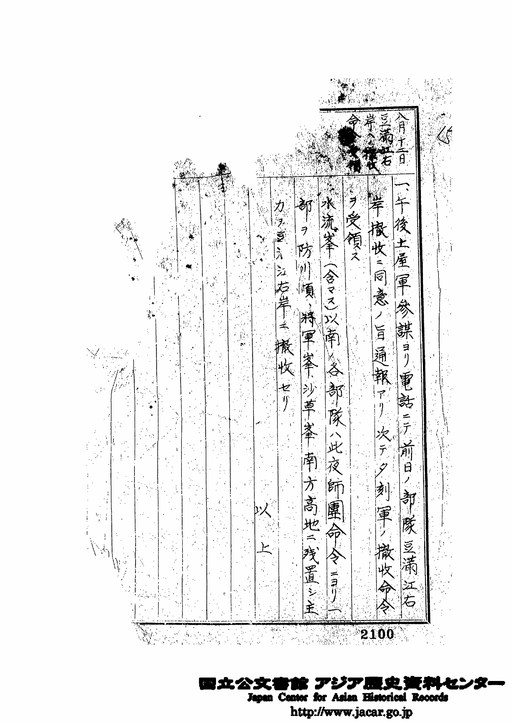 八月十二日
豆満江右
岸ヘノ撤收
命令受領
一、午後土屋軍參謀ヨリ電話ニテ前日ノ部隊豆満江右
岸撤收ニ同意ノ旨通報アリ次テ夕刻軍ノ撤收命令
ヲ受領ス
水流峯(含マス)以南ノ各部隊ハ此夜師團命令ニヨリ一
部ヲ防川項、將軍峯、沙草峯南方高地ニ残置シ主
力ヲ豆江右岸ニ撤收セリ
以上
2100
国立公文書館 アジア歴史資料センター
Japan Center for Asian Historical Records
http://www.jacar.go.jp